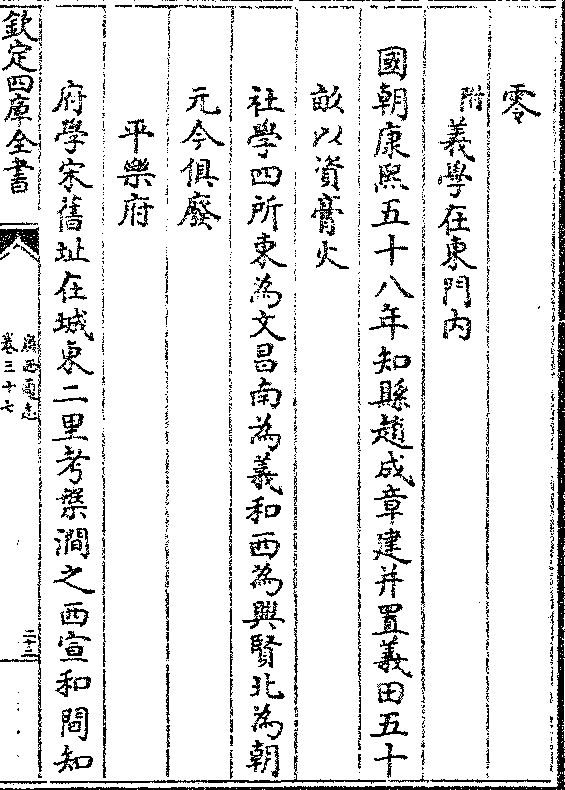 零
附義學在東門內
國朝康熙五十八年知縣趙成章建并置義田五十
畝以資膏火
社學四所東為文昌南為義和西為興賢北為朝
元今俱廢
平樂府
府學宋舊址在城東二里考槃澗之西宣和間知
欽定四庫全書
廣西通志
卷三十七
二十三